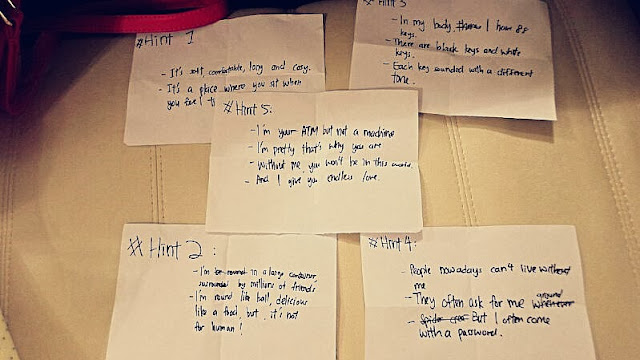 # Hint 1
- It's soft, comfortable, long and cozy.
- It's a place where you sit when
you feel
Hint 3
- In my body, I have 88
keys.
- There are black keys and white
keys.
- Each key sounded with a different
tone.
# Hint 5:
- I'm your ATM but not a machine
- I'm pretty that's why you are
- Without me, you won't be in this world.
- And I give you endless love.
# Hint 2:
- I'm in a large container
surrounded by millions of friends
- I'm round like ball, delicious
like a food, but, it's not
for human!
# Hint 4:
- People nowadays can't live without
me
- They often ask for me around
But I often come
with a password.